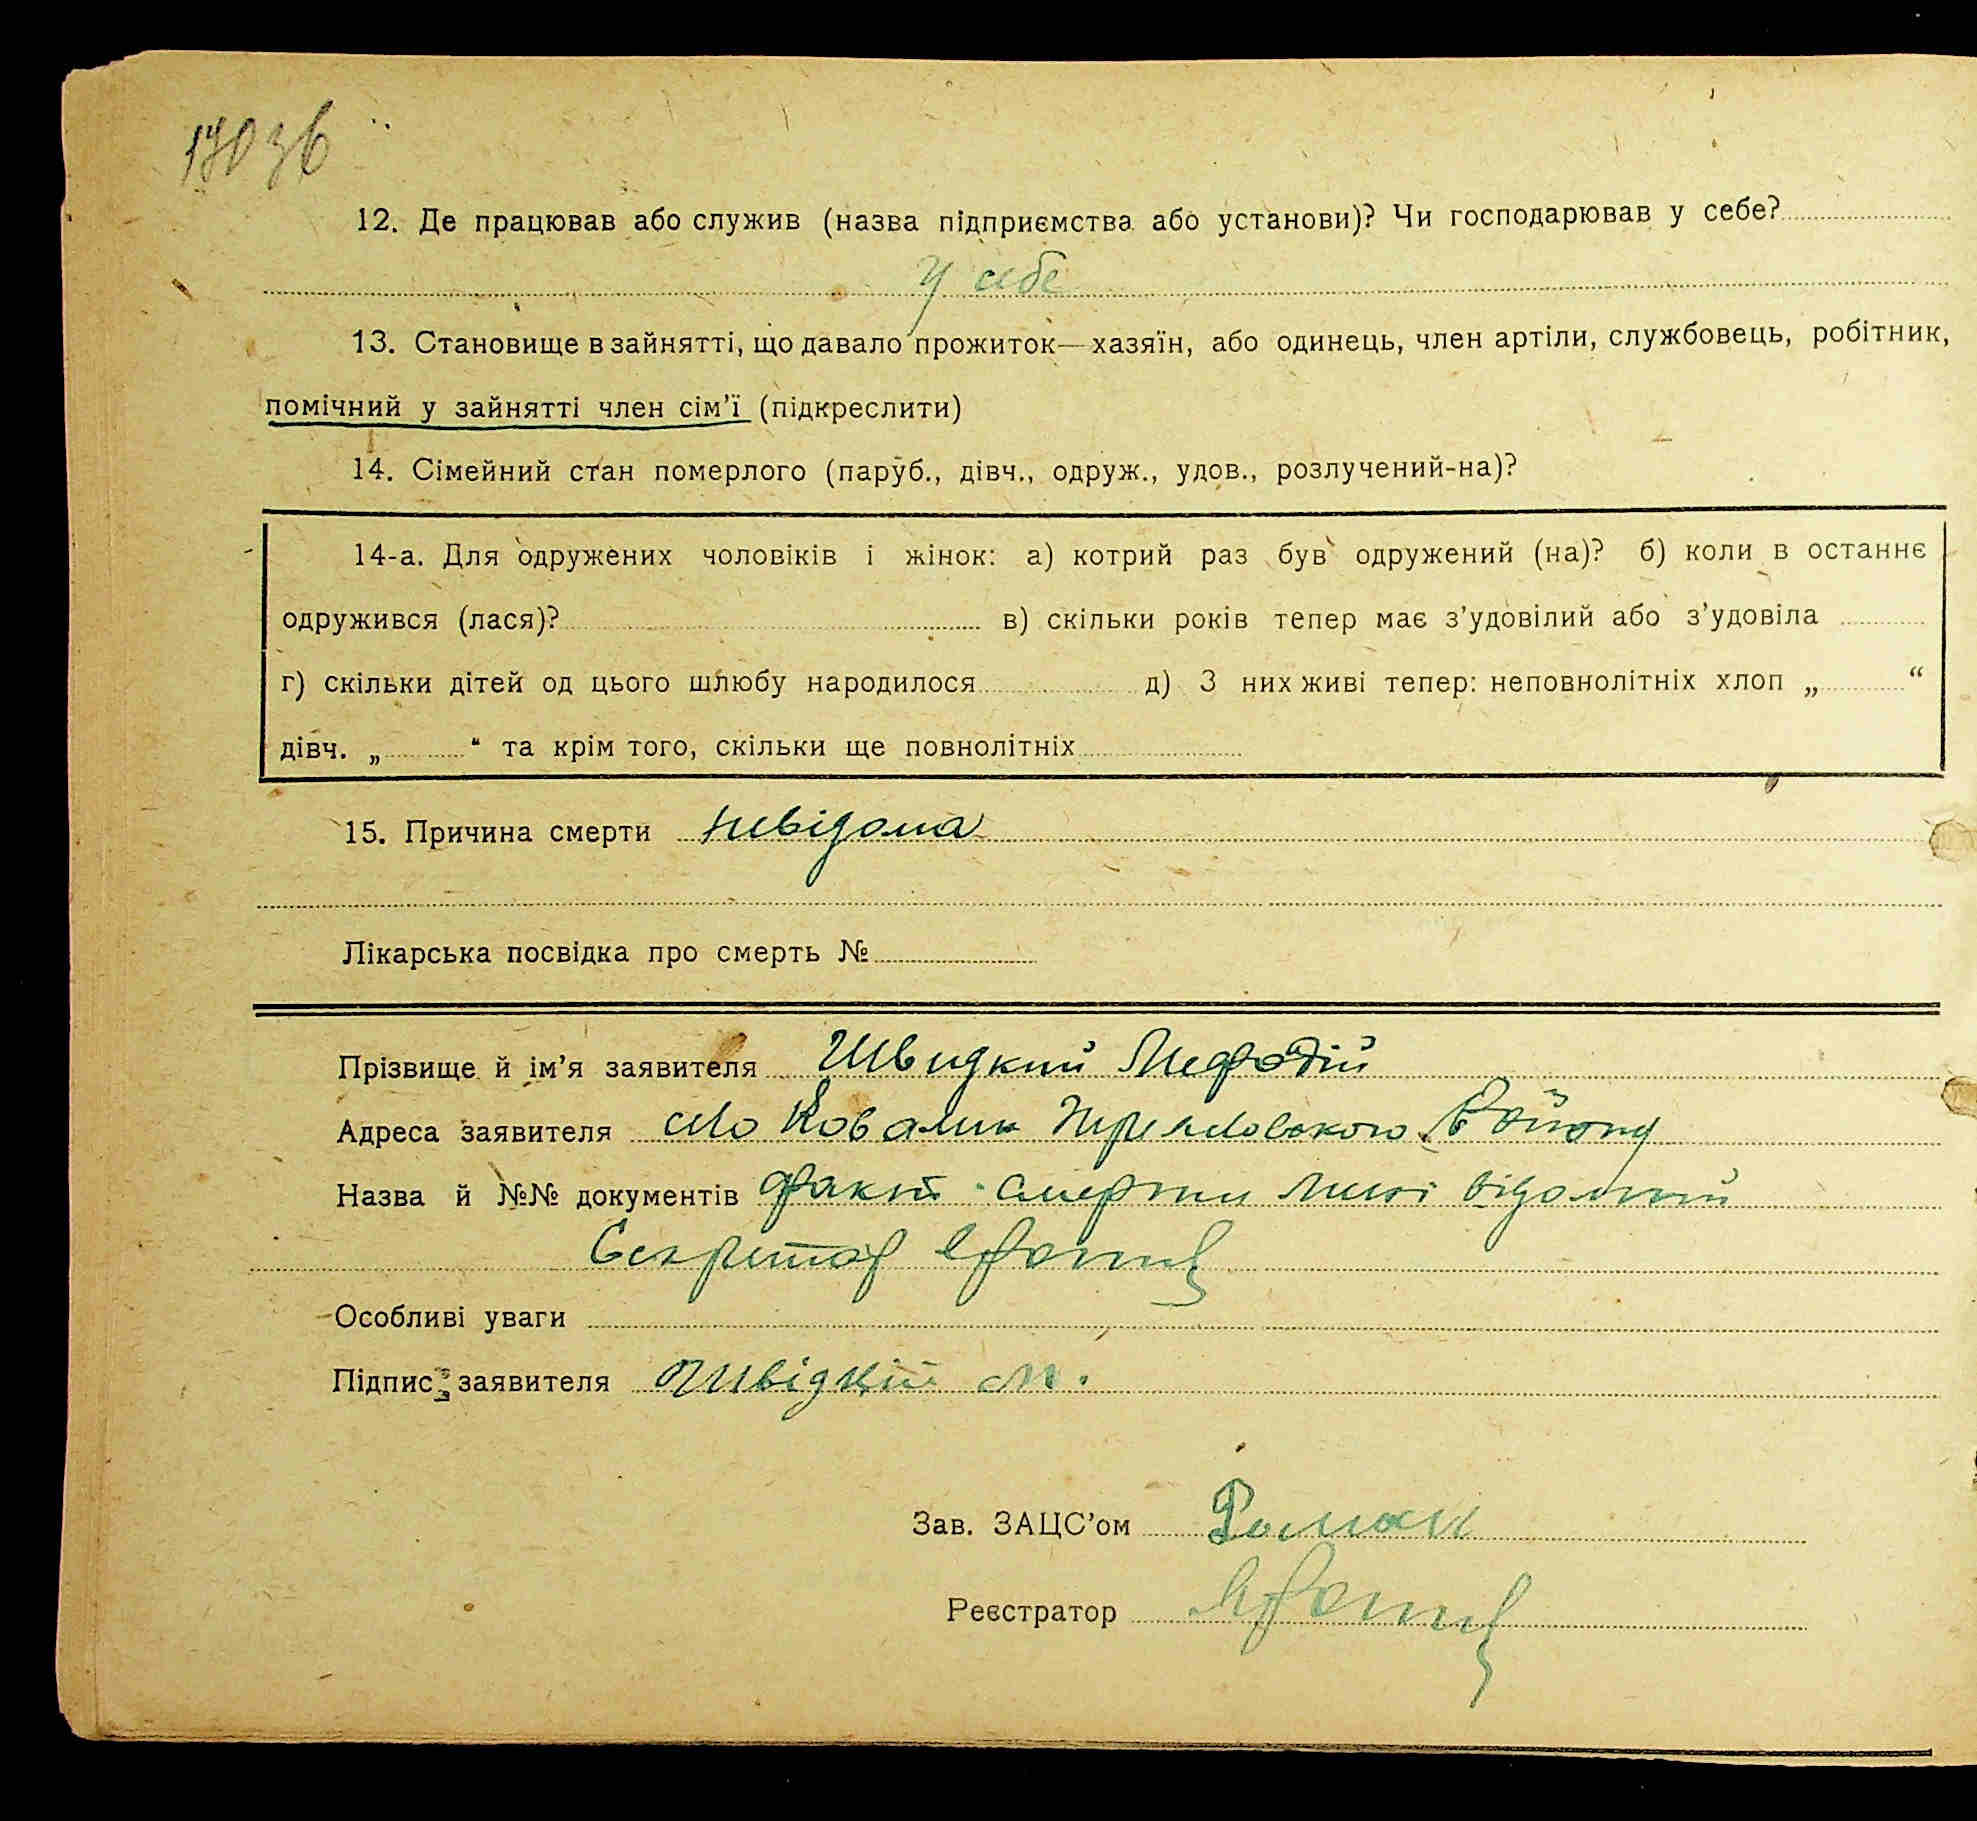 170 зв
12. Де працював або служив (назва підприємства або установи)? Чи господарював у себе?
У себе
13. Становище в зайнятті, що давало прожиток—хазяїн, або одинець, член артіли, службовець, робітник,
помічний у зайнятті член сім’ї (підкреслити)
14. Сімейний стан померлого (паруб., дівч., одруж., удов., розлучений-на)?
14-а. Для одружених чоловіків і жінок: а) котрий раз був одружений (на)? б) коли в останнє
одружився (лася)? в) скільки років тепер має з’удовілий або з’удовіла
г) скільки дітей од цього шлюбу народилося д) З них живі тепер: неповнолітніх хлоп „ “
дівч. „ “ та крім того, скільки ще повнолітніх
15. Причина смерти невідома
Лікарська посвідка про смерть №
Прізвище й ім’я заявителя Швидкий Мефодій
Адреса заявителя село Ковалин району
Назва й №№ документів факт смерти мені відомий
Секретар
Особливі уваги
Підпис заявителя Швідкій М.
Зав. ЗАЦС’ом Роман
Реєстратор